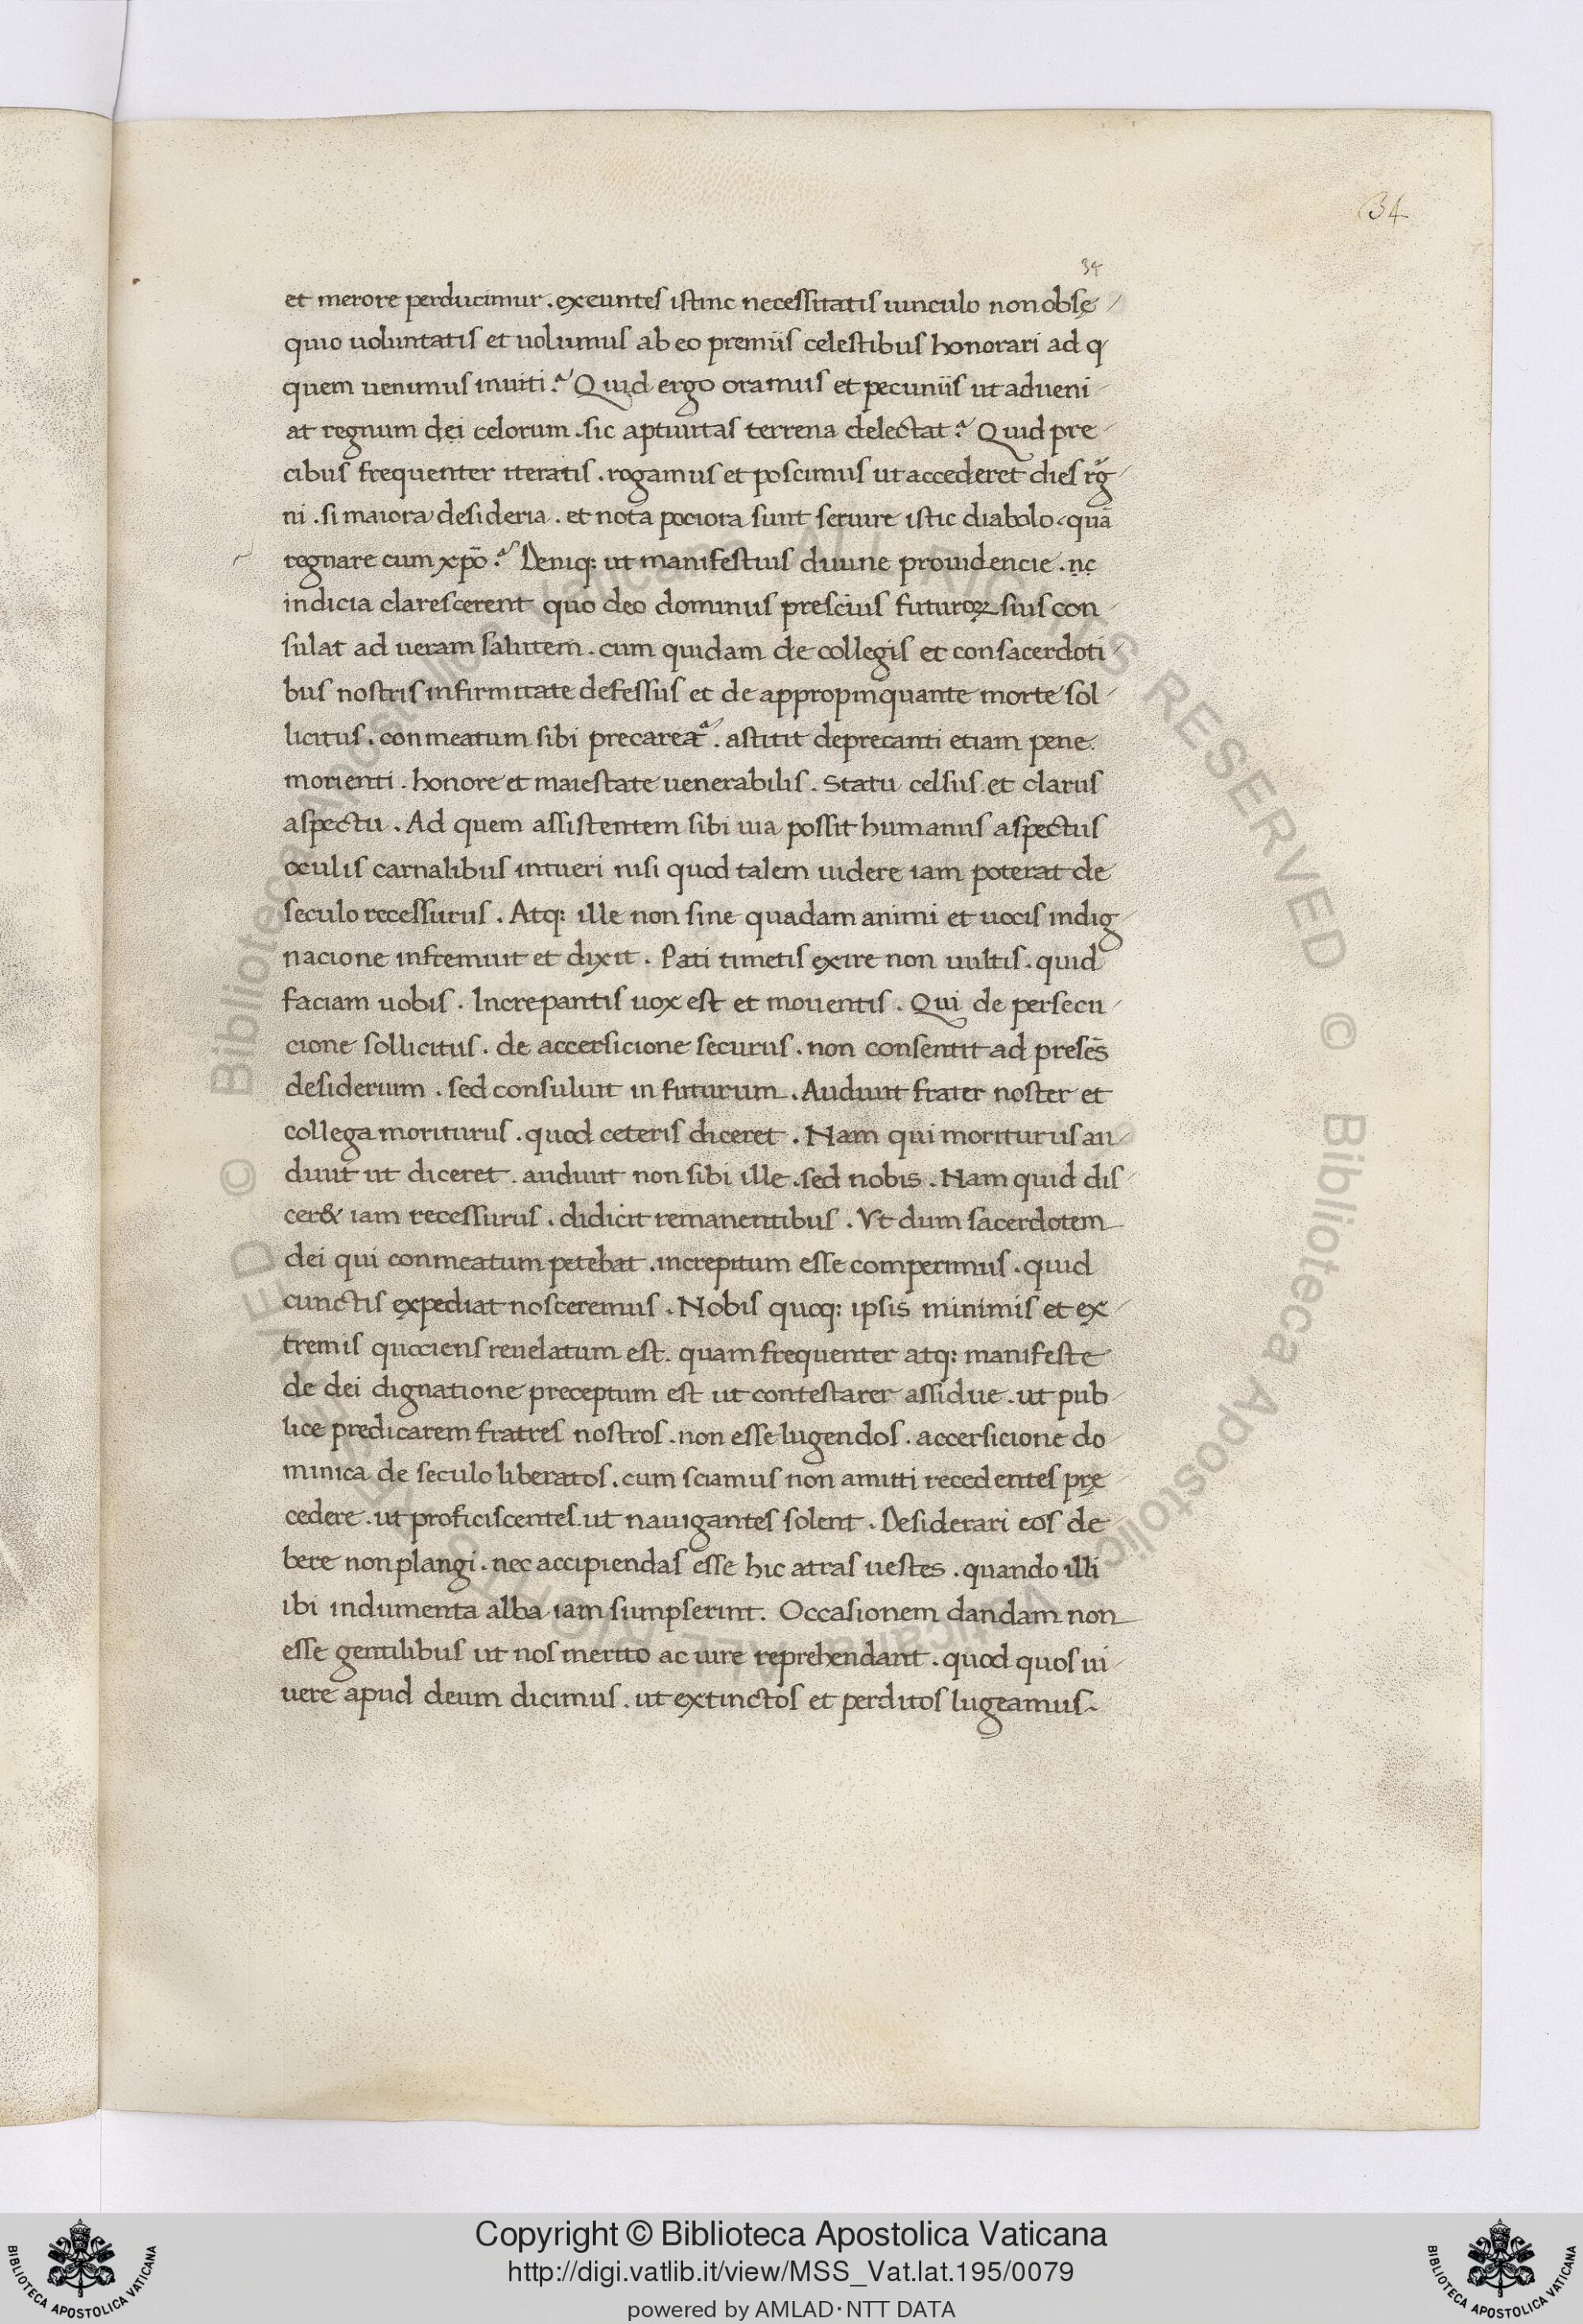 34
34
et merore perducimur . exeuntes istinc necessitatis uinculo non obsę
quio uoluntatis et uolumus ab eo premiis celestibus honorari ad q
quem uenimus inuiti ? Quid ergo oramus et pecuniis ut adueni
at regnum dei celorum . sic aptiuitas terrena delectat ? Quid pre
cibus frequenter iteratis . rogamus et poscimus ut accederet dies rg̃
ni . si maiora desideria . et nota pociora sunt seruire istic diabolo . quā
regnare cum xp̄o ? Deniq: ut manifestius diuine prouidencie . nc
indicia clarescerent quo deo dominus prescius futuroꝝ suis con
sulat ad ueram salutem . cum quidam de collegis et consacerdoti
bus nostris infirmitate defessus et de appropinquante morte sol
licitus . conmeatum sibi precareat᷑ . astitit deprecanti etiam pene
morienti . honore et maiestate uenerabilis . Statu celsus et clarus
aspectu . Ad quem assistentem sibi uia possit humanus aspectus
oculis carnalibus intueri nisi quod talem uidere iam poterat de
seculo recessurus . Atq: ille non sine quadam animi et uocis indig
nacione infremuit et dixit . Pati timetis exire non uultis . quid
faciam uobis . Increpantis uox est et mouentis . Qui de persecu
cione sollicitus . de accersicione securus . non consentit ad presēs
desiderium . sed consuluit in futurum . Audiuit frater noster et
collega moriturus . quod ceteris diceret . Nam qui moriturus au
diuit ut diceret . audiuit non sibi ille . sed nobis . Nam quid dis
cer& iam recessurus . didicit remanentibus . Vt dum sacerdotem
dei qui conmeatum petebat . increpitum esse comperimus . quid
cunctis expediat nosceremus . Nobis quoq: ipsis minimis et ex
tremis quociens reuelatum est . quam frequenter atq: manifeste
de dei dignatione preceptum est ut contestarer assidue . ut pub
lice predicarem fratres nostros . non esse lugendos . accersicione do
minica de seculo liberatos . cum sciamus non amitti recedentes prę
cedere . ut proficiscentes . ut nauigantes solent . Desiderari eos de
bere non plangi . nec accipiendas esse hic atras uestes . quando illi
ibi indumenta alba iam sumpserint . Occasionem dandam non
esse gentilibus ut nos merito ac iure reprehendant . quod quos ui
uere apud deum dicimus . ut extinctos et perditos lugeamus
© Biblioteca Apostolica Vaticana ALL RIGHTS RESERVED © Biblioteca Apostolica Vaticana ALL RIGHTS RESERVED
Copyright © Biblioteca Apostolica Vaticana
http://digi.vatlib.it/view/MSS_Vat.lat.195/0079
powered by AMLAD·NTT DATA
BIBLIOTECA APOSTOLICA VATICANA
BIBLIOTECA APOSTOLICA VATICANA